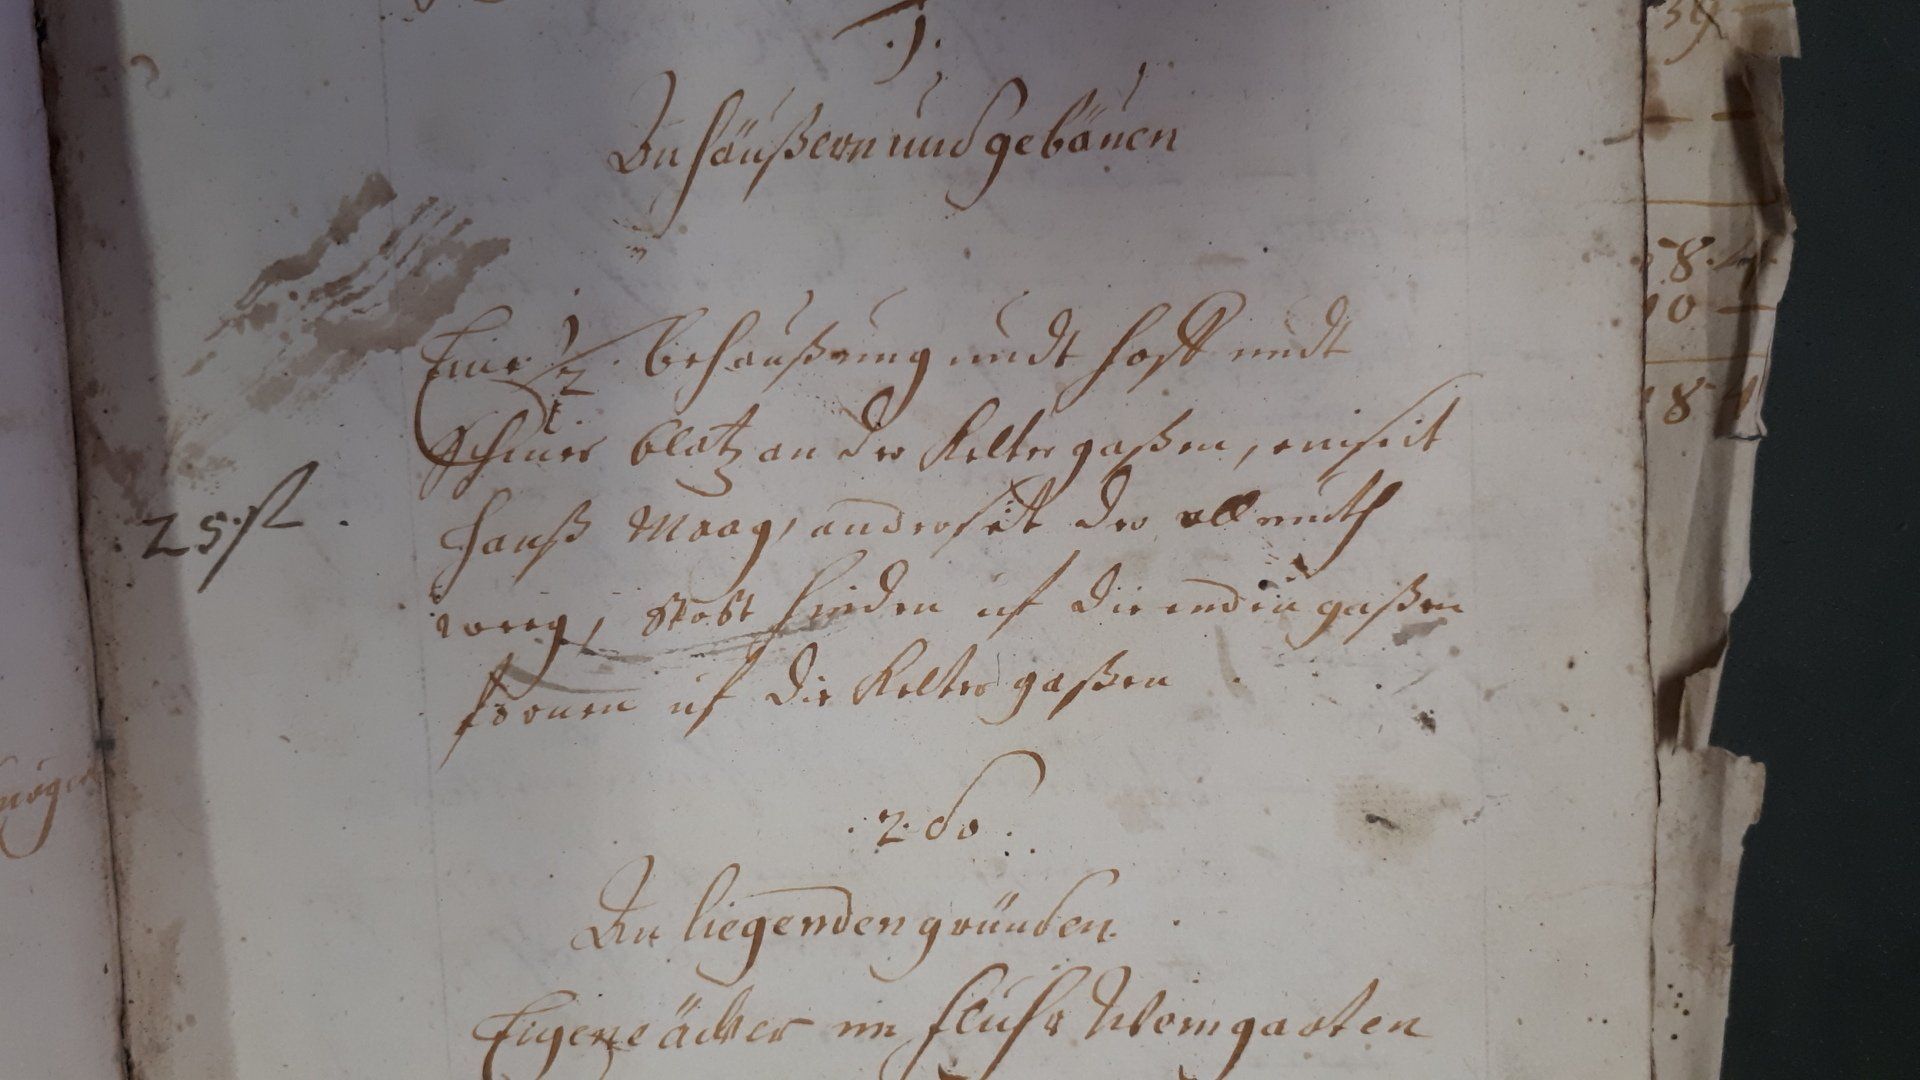 .1.
An häußern und gebäuen
Eine 1/2 behaußung undt hoff undt
Scheuer blatz an der Kelter gaßen, einseit
25 fl.
Hanß Maag, anderseit der allmuth
weeg, stost hinden uf die undere gaßen
fornen uf die Kelter gaßen
.2.do.
An liegenden gründen.
Eigene äcker im fluhr Weingarten